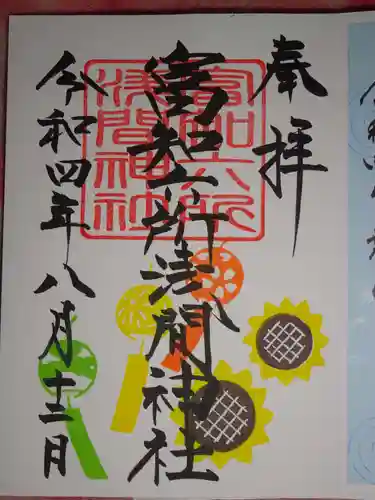 奉拝
冨知六所浅間神社
令和四年八月十二日
冨知六所
浅間神社